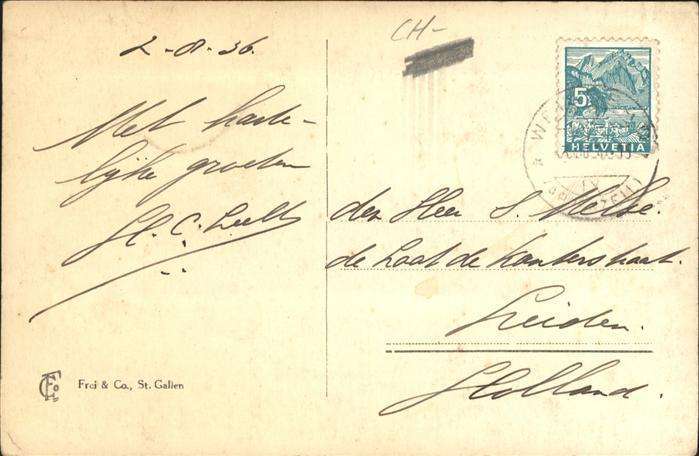 2-8-36.
Met harte-
lijke groeten
H. C.
CH-
5
HELVETIA
den Heer S.
de Laat de Kanterstraat.
Leiden.
Holland.
Frei & Co., St. Gallen